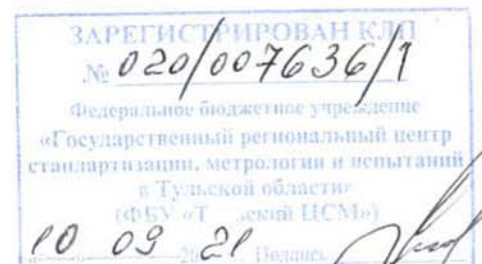 ЗАРЕГИСТРИРОВАН КЛП
№ 020/007636/1
Федеральное бюджетное учреждение
«Государственный региональный центр
стандартизации, метрологии и испытаний
в Тульской области»
(ФБУ «Т ский ЦСМ»)
10 09 20 21 Подпись